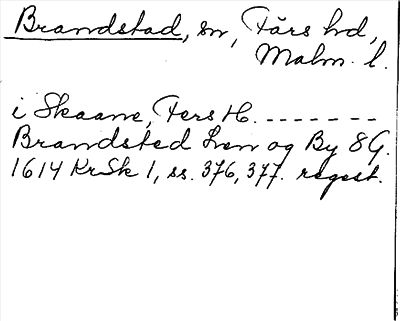 Brandstad, sn, Färs hd,
Malm. l.
i Skaane, Fers H. -------
Brandsted Len og By 8 G.
1614 KrSk 1, ss. 376, 377. regest.